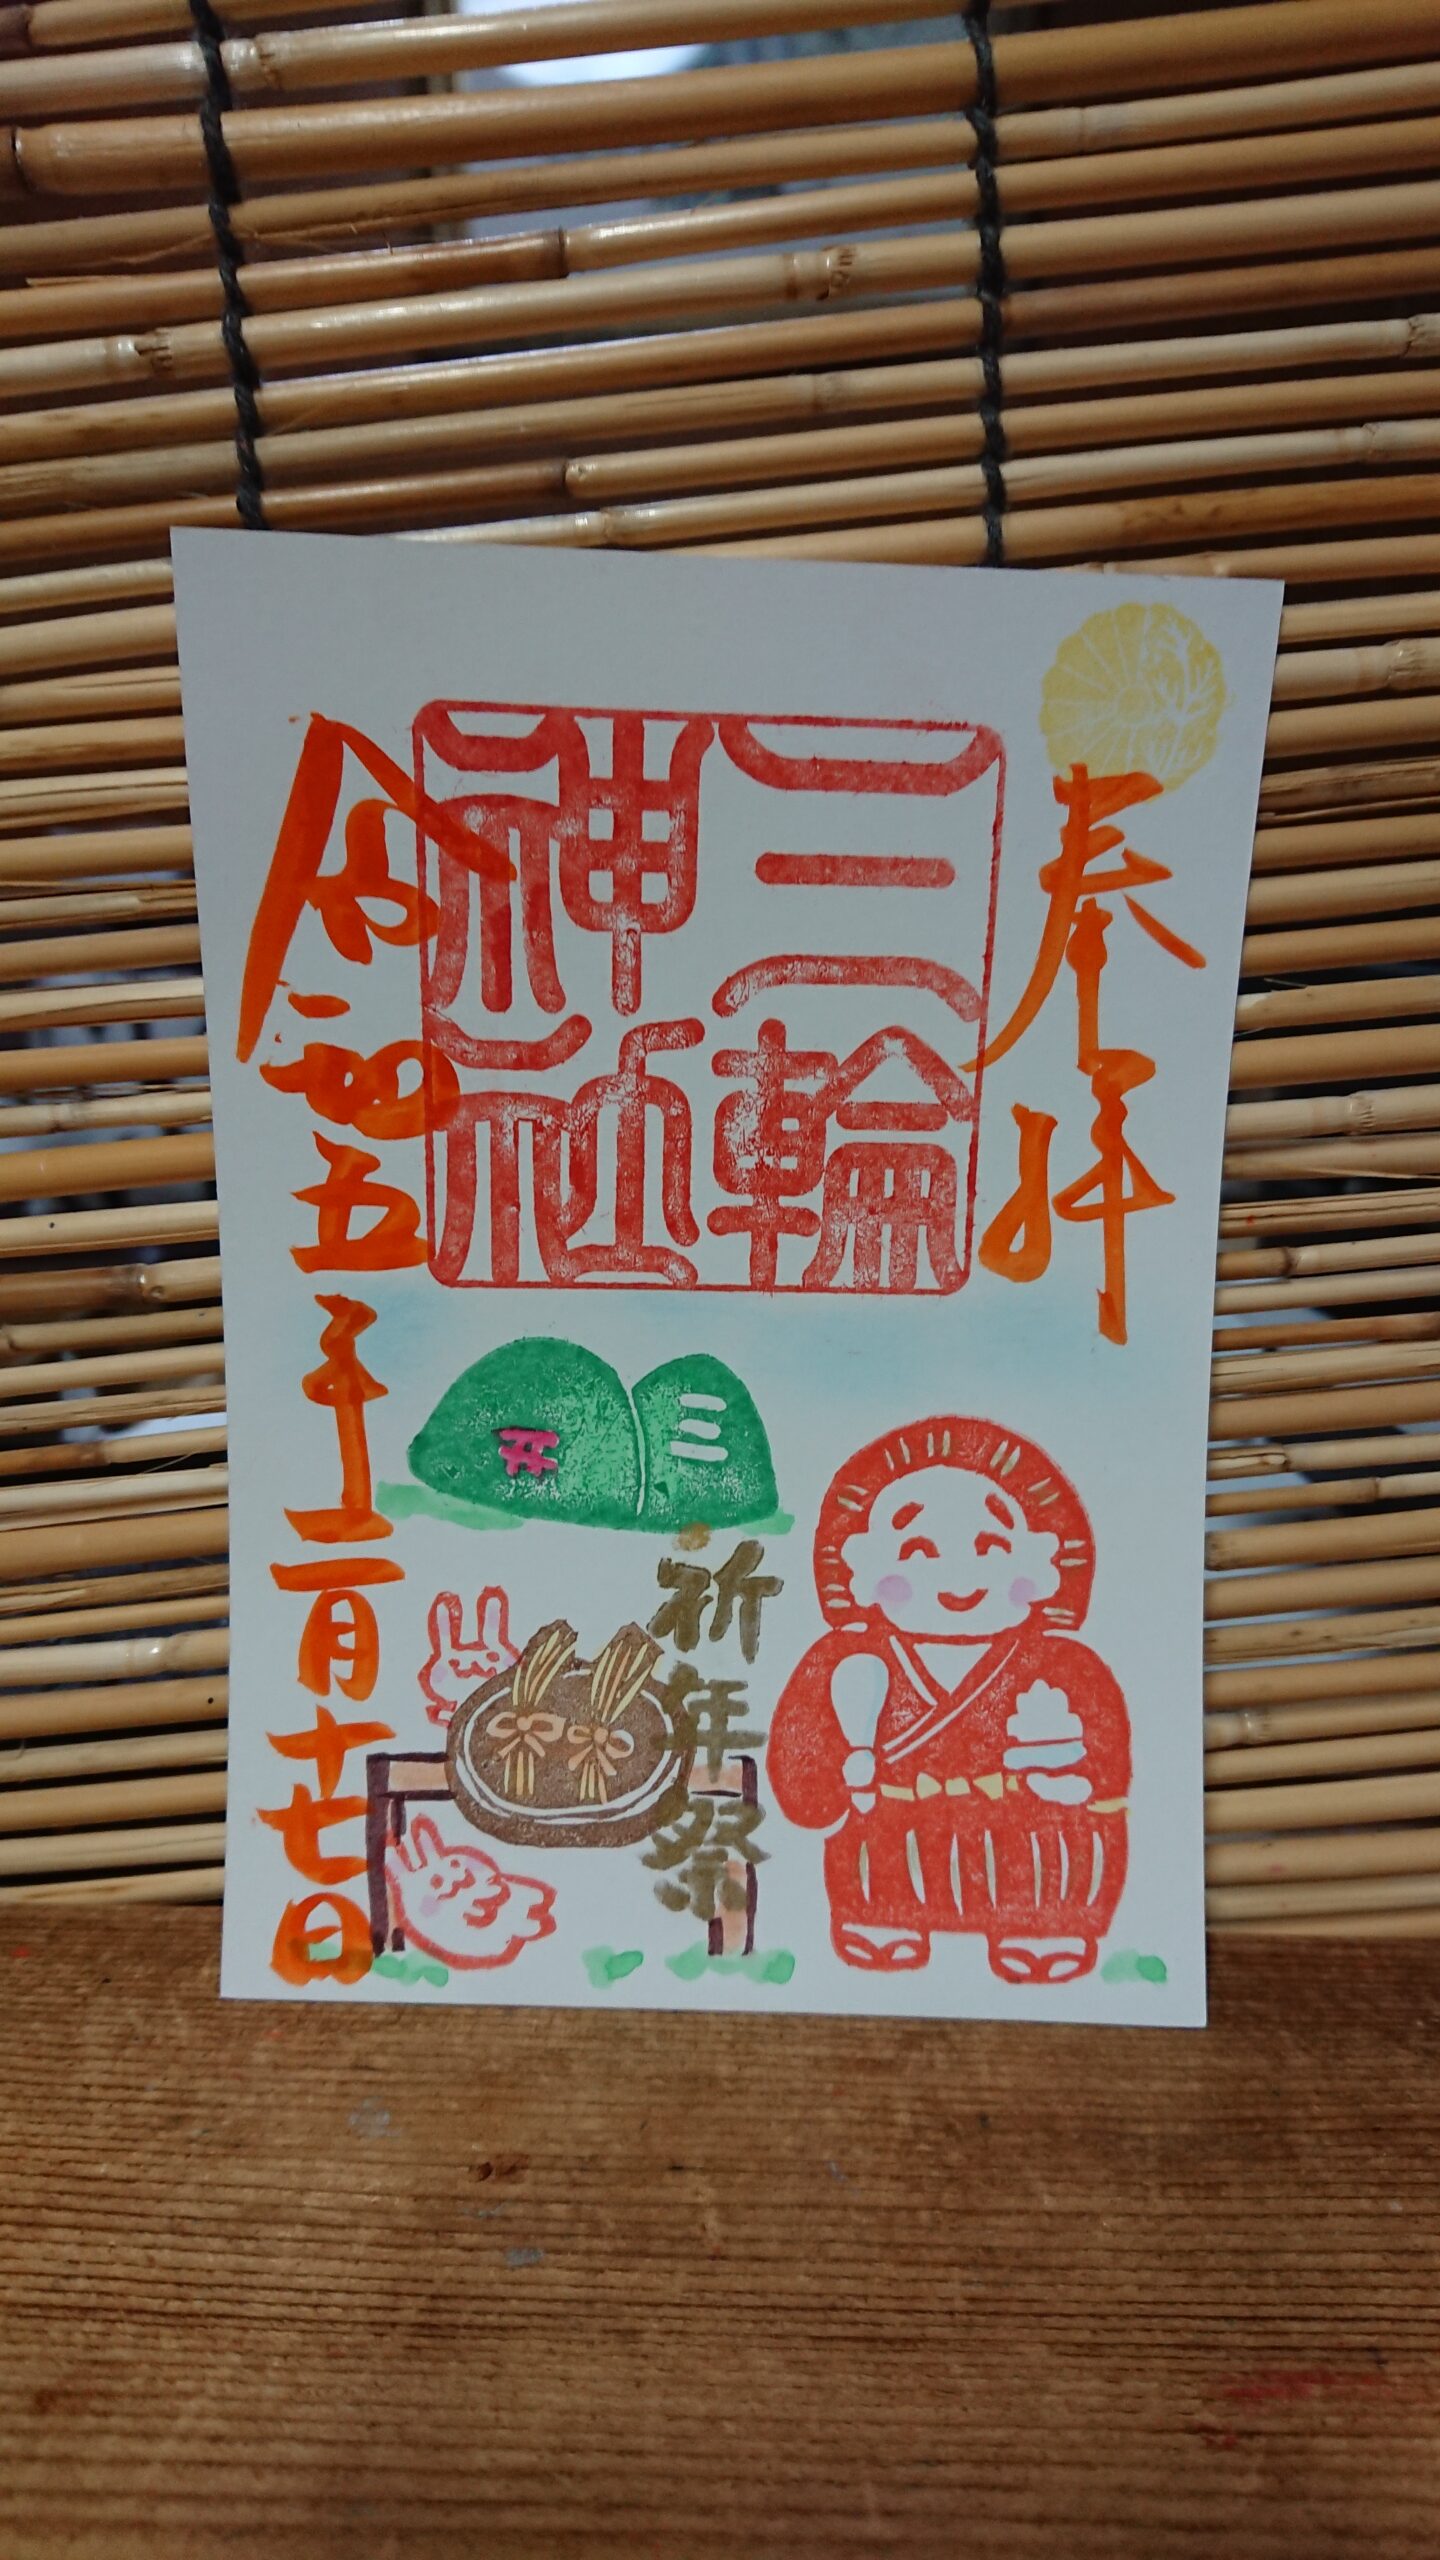 奉拝
三輪
神社
令和五年二月十七日
三
开
祈年祭